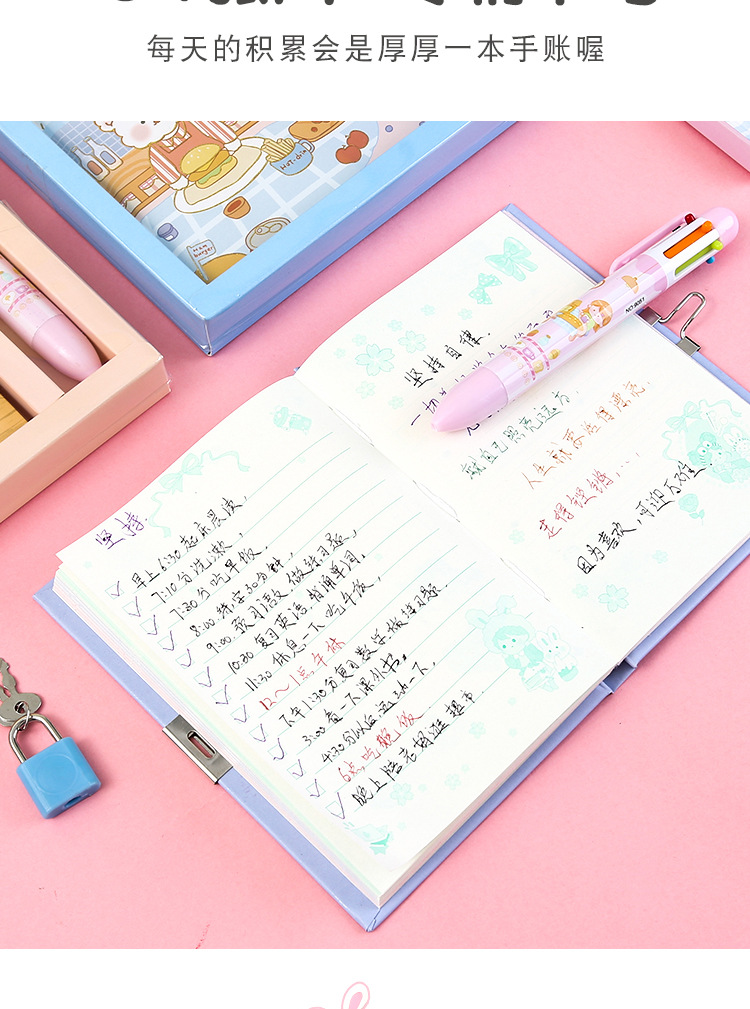 每天的积累会是厚厚一本手账喔
Ham
burger
坚持自律.
一切
就自己照亮远方
人生就要活得漂亮.
走得铿锵...
因为喜欢,可迎万难
坚持
早上6:30起床晨读,
7:10分洗漱,
7:30分吃早饭,
8:00.练字30分钟,
9:00.预习语数,做练习题,
10:30 复习英语,背诵单词,
11:30 休息一下,吃午饭,
12~1点午休
下午1:30分复习数学,做练习题.
3:00看一下课外书。
4:30分以后运动一下,
6点吃晚饭
晚上陪老妈逛超市.